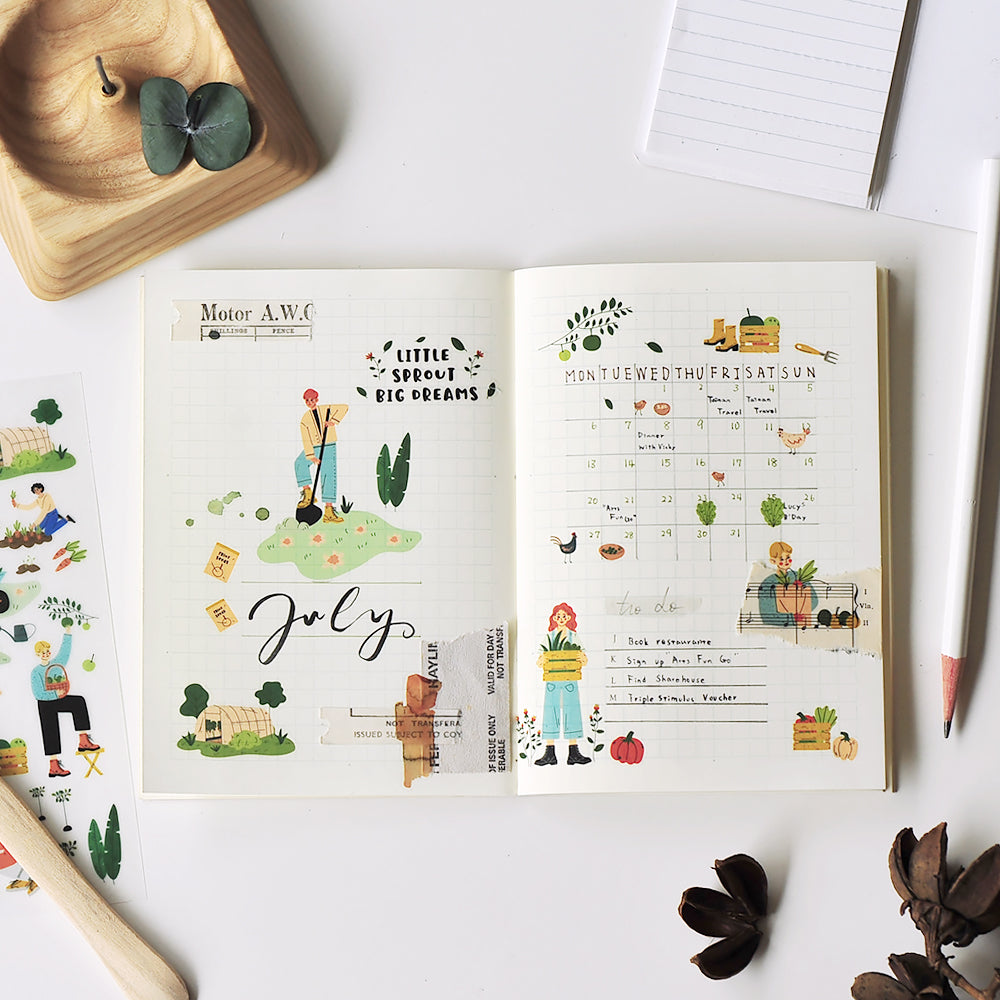 Motor A.W.
SHILLINGS PENCE
LITTLE
SPROUT
BIG DREAMS
July
HAYLIN
VALID FOR DAY
NOT TRANSF
NOT TRANSFERA
ISSUED SUBJECT TO COY
OF ISSUE ONLY
FERABLE
MON TUE WED THU FRI SAT SUN
1 2 3 4 5
Tainan Tainan
Travel Travel
6 7 8 9 10 11 12
Dinner
with Vicky
13 14 15 16 17 18 19
20 21 22 23 24 25 26
"Arts Lucy's
Fun Go" B'Day
27 28 29 30 31
I
Vln.
II
to do
J Book restaurante
K Sign up "Arts Fun Go"
L Find Sharehouse
M Triple Stimulus Voucher